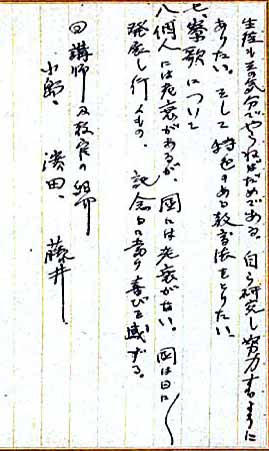 生徒も其の気分でやらねばだめである。自ら研究し努力する様に
ありたい。そして特色のある教育法をとりたい。
七、寮歌について
八、個人には老衰があるが、国には老衰がない。国は日に
発展し行くもの。記念日に当り喜びを感ずる。
四 講師及教官の紹介
小野、濱田、藤井